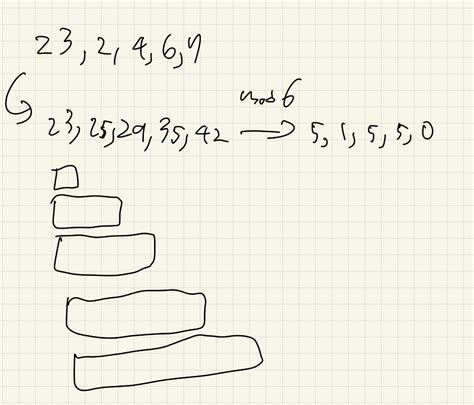 23, 2, 4, 6, 7
mod 6
23, 25, 29, 35, 42 → 5, 1, 5, 5, 0